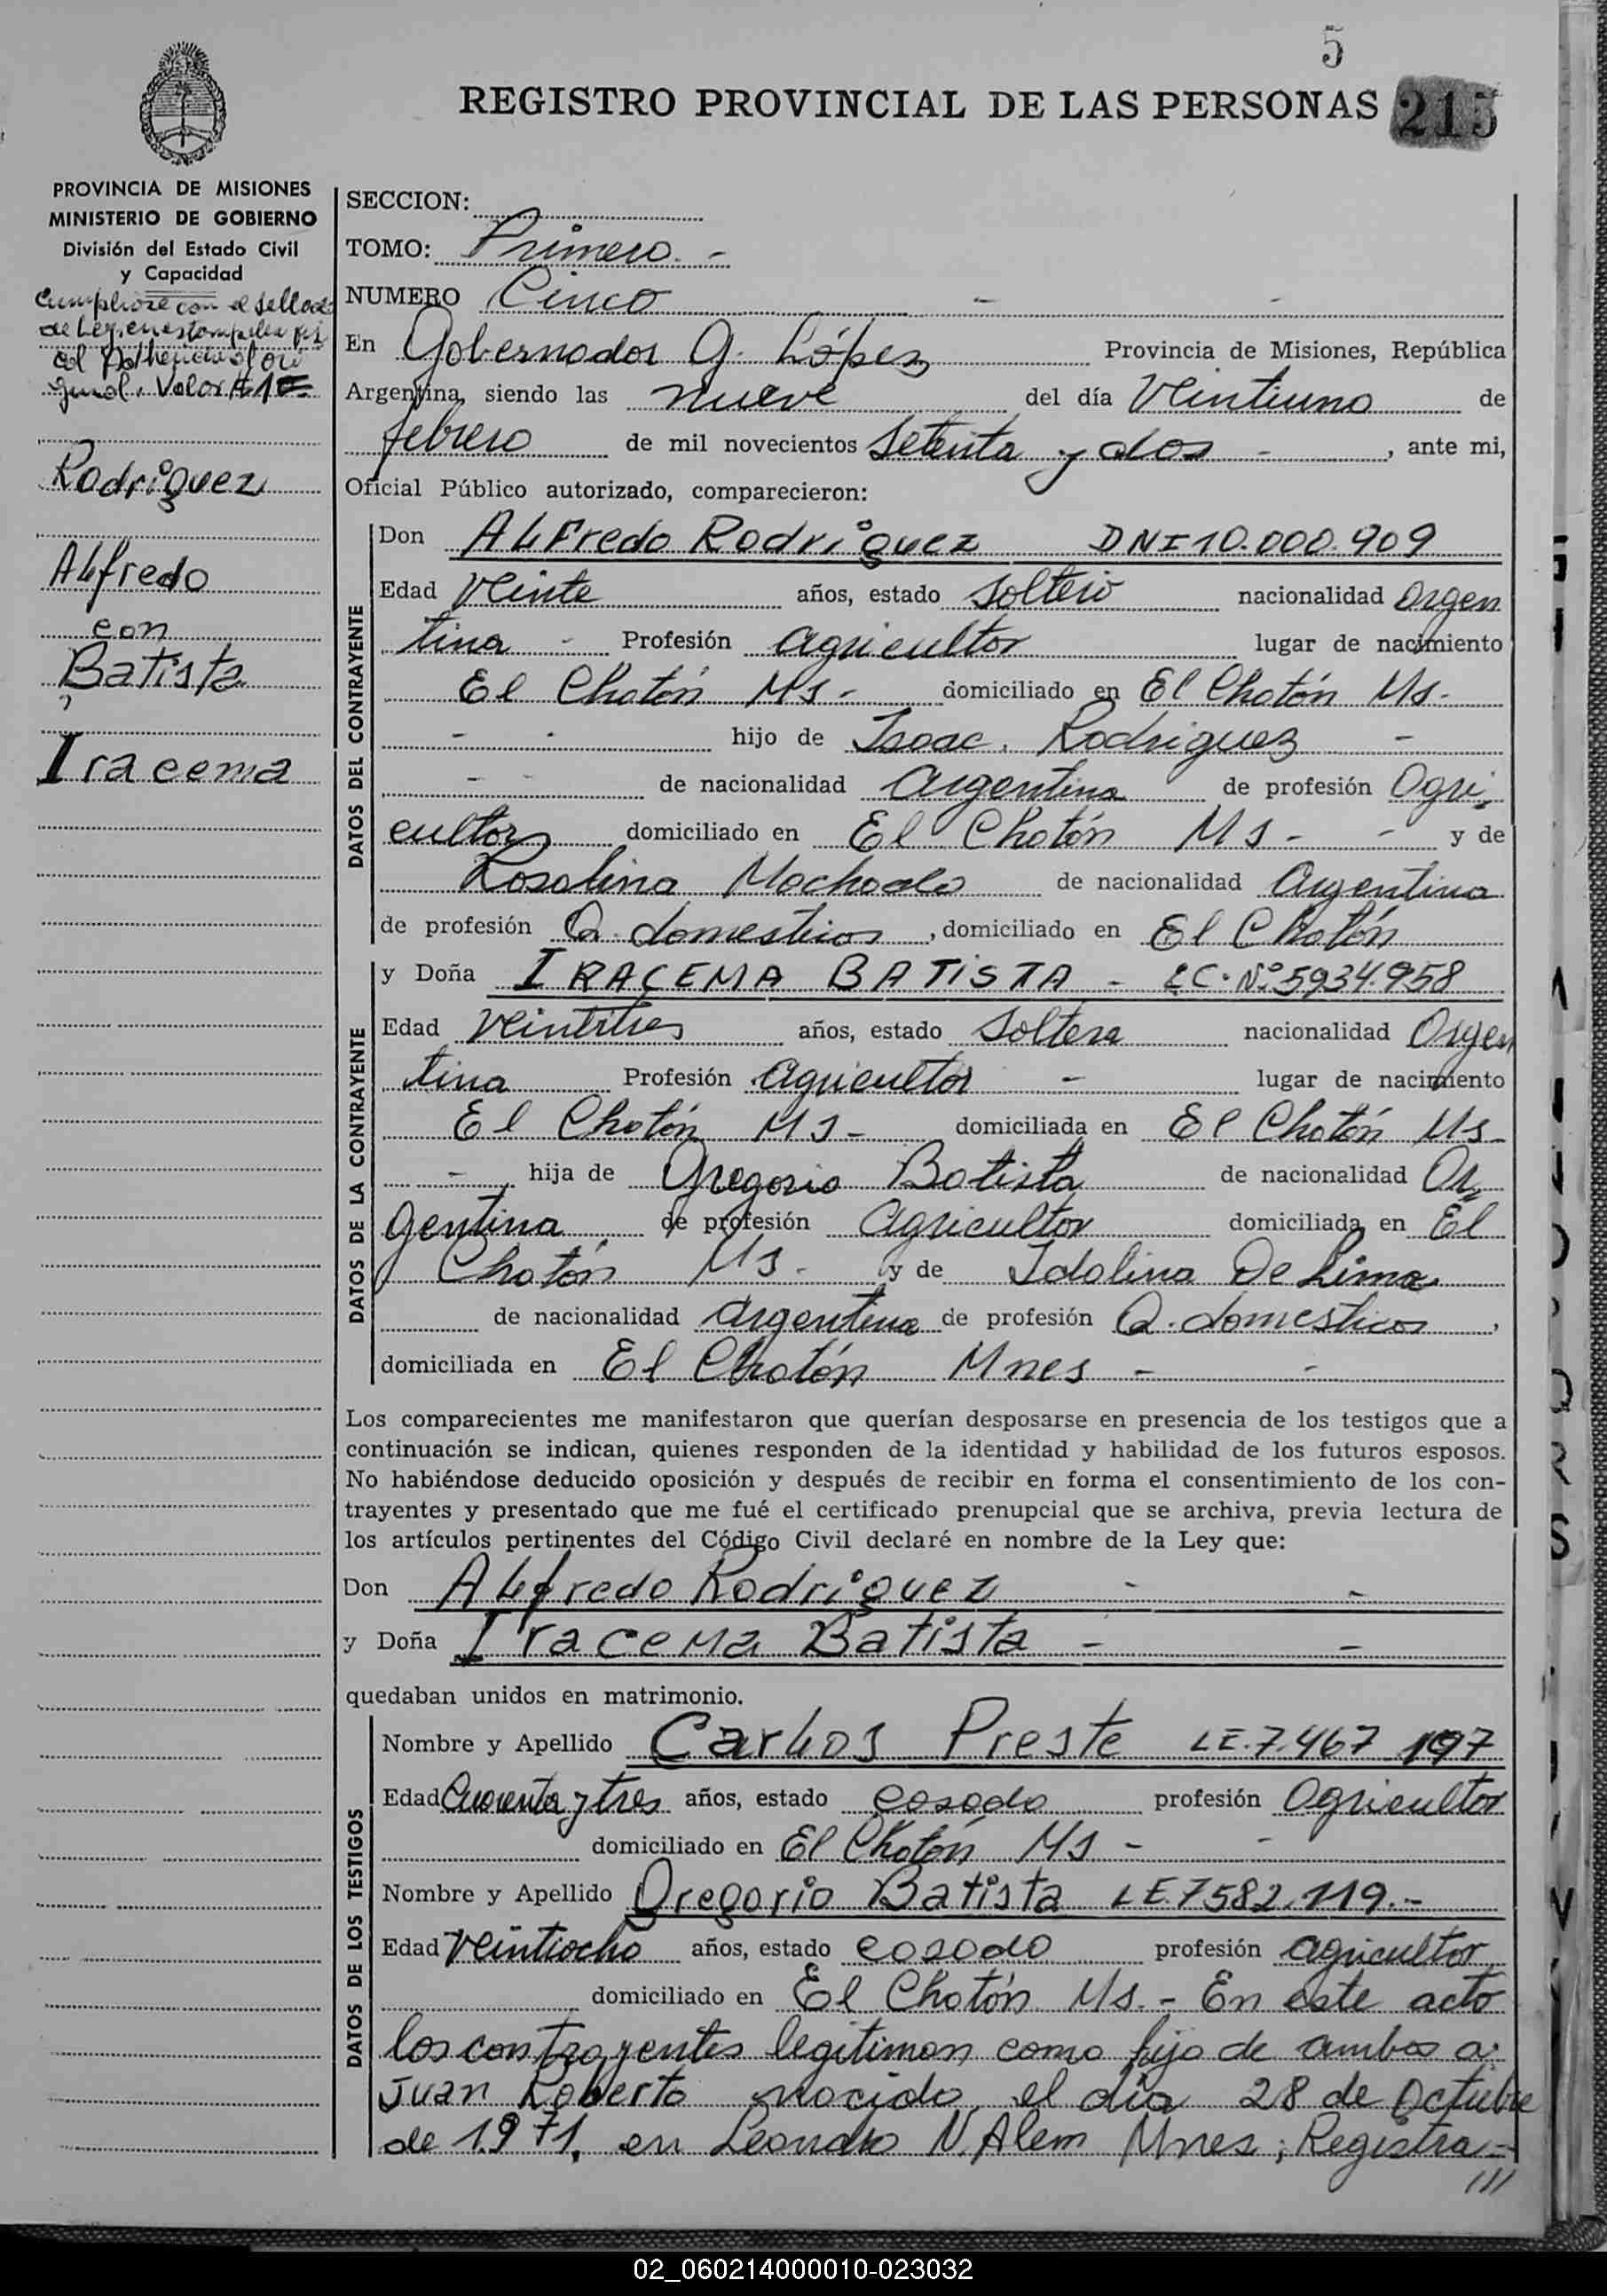 5
REGISTRO PROVINCIAL DE LAS PERSONAS 215
PROVINCIA DE MISIONES
MINISTERIO DE GOBIERNO
División del Estado Civil
y Capacidad
Cumpliose con el sellado
de Ley, en estampilla
al
Valor $ 10=
Rodriguez
Alfredo
con
Batista
,
Iracema
SECCION:
TOMO: Primero. -
NUMERO Cinco - -
En Gobernador G. López Provincia de Misiones, República
Argentina, siendo las nueve del día Veintiuno de
febrero de mil novecientos Setenta y dos - , ante mi,
Oficial Público autorizado, comparecieron:
DATOS DEL CONTRAYENTE
Don ALFredo Rodriguez DNI 10.000.909
Edad Veinte años, estado soltero nacionalidad Argen
tina - Profesión agricultor lugar de nacimiento
El Chatón Ms - domiciliado en El Chatón Ms.
- - hijo de Isaac. Rodriguez -
- - de nacionalidad argentina de profesión Agri,
cultor domiciliado en El Chatón Ms - - y de
Rosalina Machado de nacionalidad Argentina
de profesión Q. domesticos , domiciliado en El Chatón
DATOS DE LA CONTRAYENTE
y Doña IRACEMA BATISTA - LC. Nº 5934.958
Edad Veintitres años, estado soltera nacionalidad Argen
tina Profesión agricultor - lugar de nacimiento
El Chatón Ms - domiciliada en El Chatón Ms
- hija de Gregorio Batista de nacionalidad Ar,
gentina de profesión agricultor domiciliada en El
Chatón Ms. y de Idalina De Lima
de nacionalidad argentina de profesión Q. domesticos ,
domiciliada en El Chatón Mnes - -
Los comparecientes me manifestaron que querían desposarse en presencia de los testigos que a
continuación se indican, quienes responden de la identidad y habilidad de los futuros esposos.
No habiéndose deducido oposición y después de recibir en forma el consentimiento de los con-
trayentes y presentado que me fué el certificado prenupcial que se archiva, previa lectura de
los artículos pertinentes del Código Civil declaré en nombre de la Ley que:
Don ALfredo Rodriguez - -
y Doña Iracema Batista - -
quedaban unidos en matrimonio.
DATOS DE LOS TESTIGOS
Nombre y Apellido Carlos Preste LE.7.467 197
Edad Cuarenta y tres años, estado casado profesión Agricultor
domiciliado en El Chatón Ms - -
Nombre y Apellido Gregorio Batista LE.7582.119.-
Edad Veintiocho años, estado casado profesión agricultor
domiciliado en El Chatón Ms. - En este acto
los contrayentes legitiman como hijo de ambos a:
Juan Roberto nacido el día 28 de Octubre
de 1971, en Leandro N. Alem Mnes; Registra-
///
02_060214000010-023032